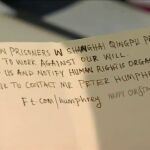 PRISONERS IN SHANGHAI QINGPU
TO WORK AGAINST OUR WILL.
US AND NOTIFY HUMAN RIGHTS
TO CONTACT ME PETER HUMPHR
Ft.com/humphrey